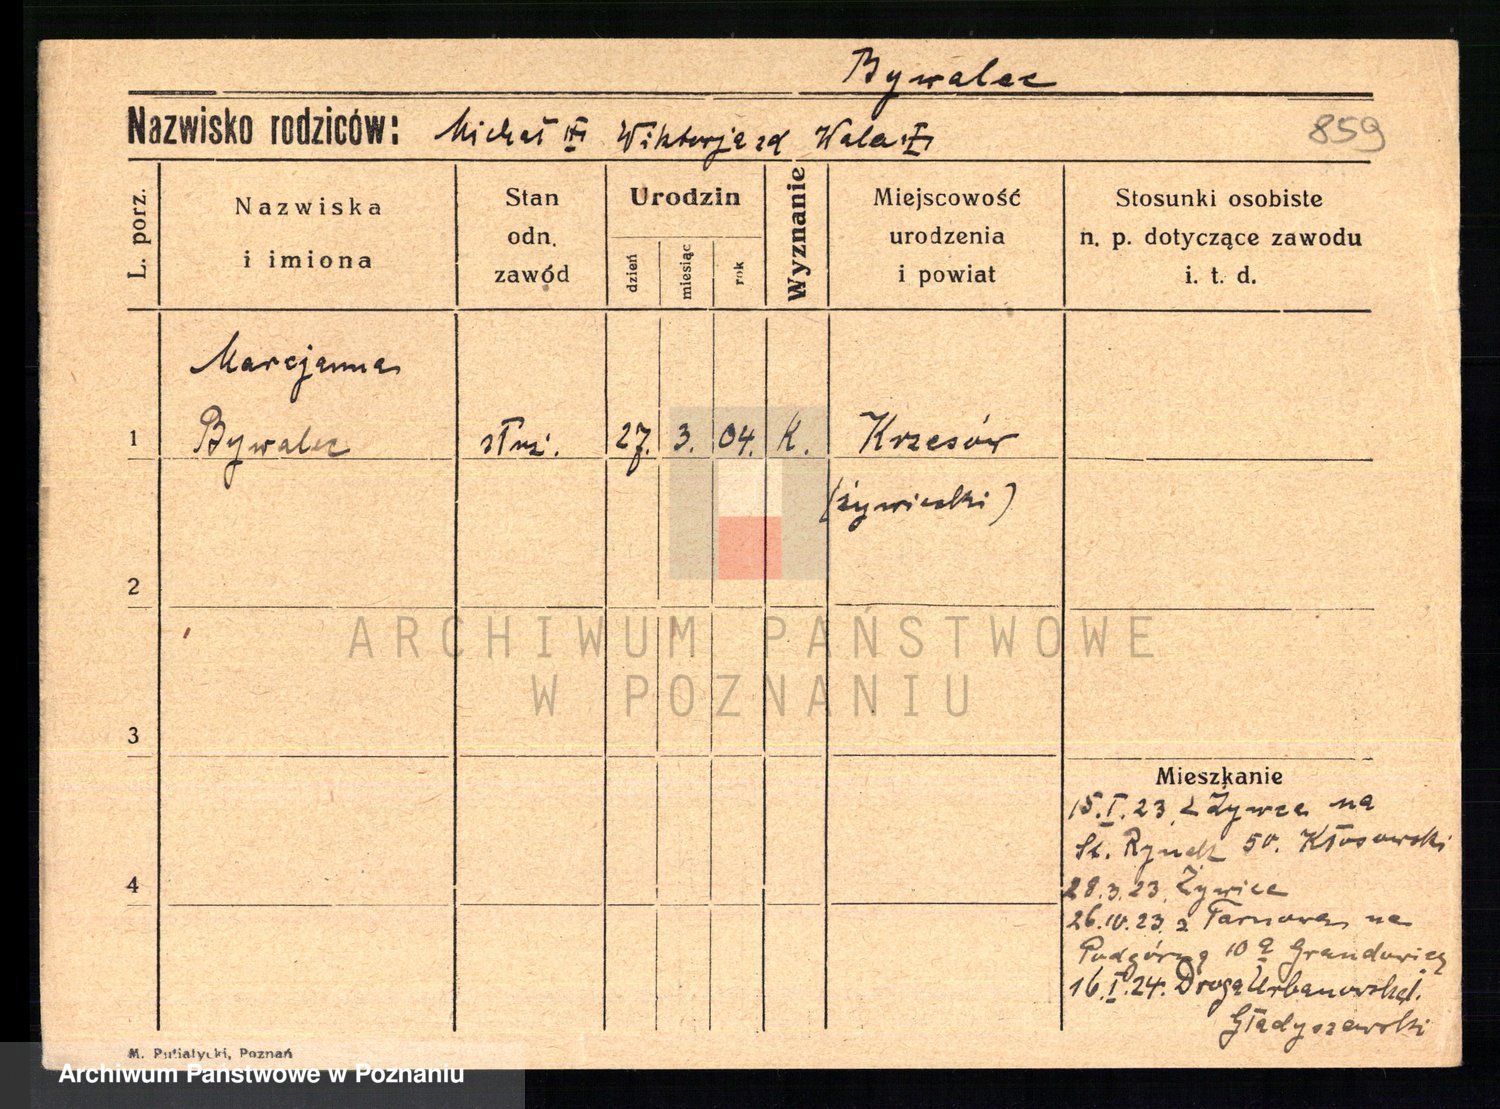 Bywalec
Nazwisko rodziców: Michał Wiktorja zd Wala
859
L. porz.
Nazwiska
i imiona
Stan
odn.
zawód
Urodzin
dzień
miesiąc
rok
Wyznanie
Miejscowość
urodzenia
i powiat
Stosunki osobiste
n. p. dotyczące zawodu
i. t. d.
Marcjanna
1 Bywalec służ. 27. 3. 04. K. Krzesów
(żywiecki)
2
ARCHIWUM PAŃSTWOWE
W POZNANIU
3
Mieszkanie
15.I.23. z Żywca na
St. Rynek 50. Kłosowski
4
28.3.23. Żywiec
26.10.23. z Tarnowa na
Podgórną 10a Grandowicz
16.I.24. Droga Urbanowska 1.
Gładyszewski
M. Putiatycki, Poznań
Archiwum Państwowe w Poznaniu